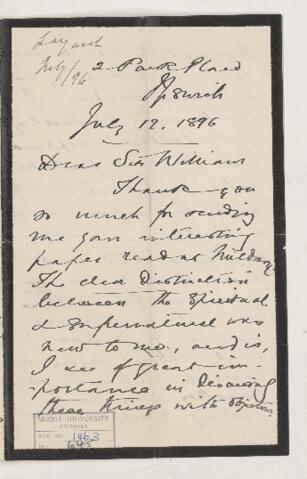 Layard
July/96
2 Park Place
Ipswich
July 12. 1896
Dear Sir William
Thank you
so much for sending
me your interesting
paper read at
The clear distinction
between the Spiritual
& Supernatural was
new to me, and is,
I see of great im-
portance in discussing
these things with
McGILL UNIVERSITY
ARCHIVES
ACC. NO. 1463